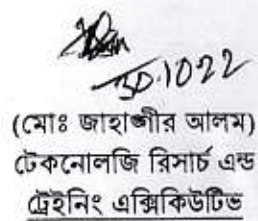 30.1022
(মোঃ জাহাঙ্গীর আলম)
টেকনোলজি রিসার্চ এন্ড
ট্রেইনিং এক্সিকিউটিভ